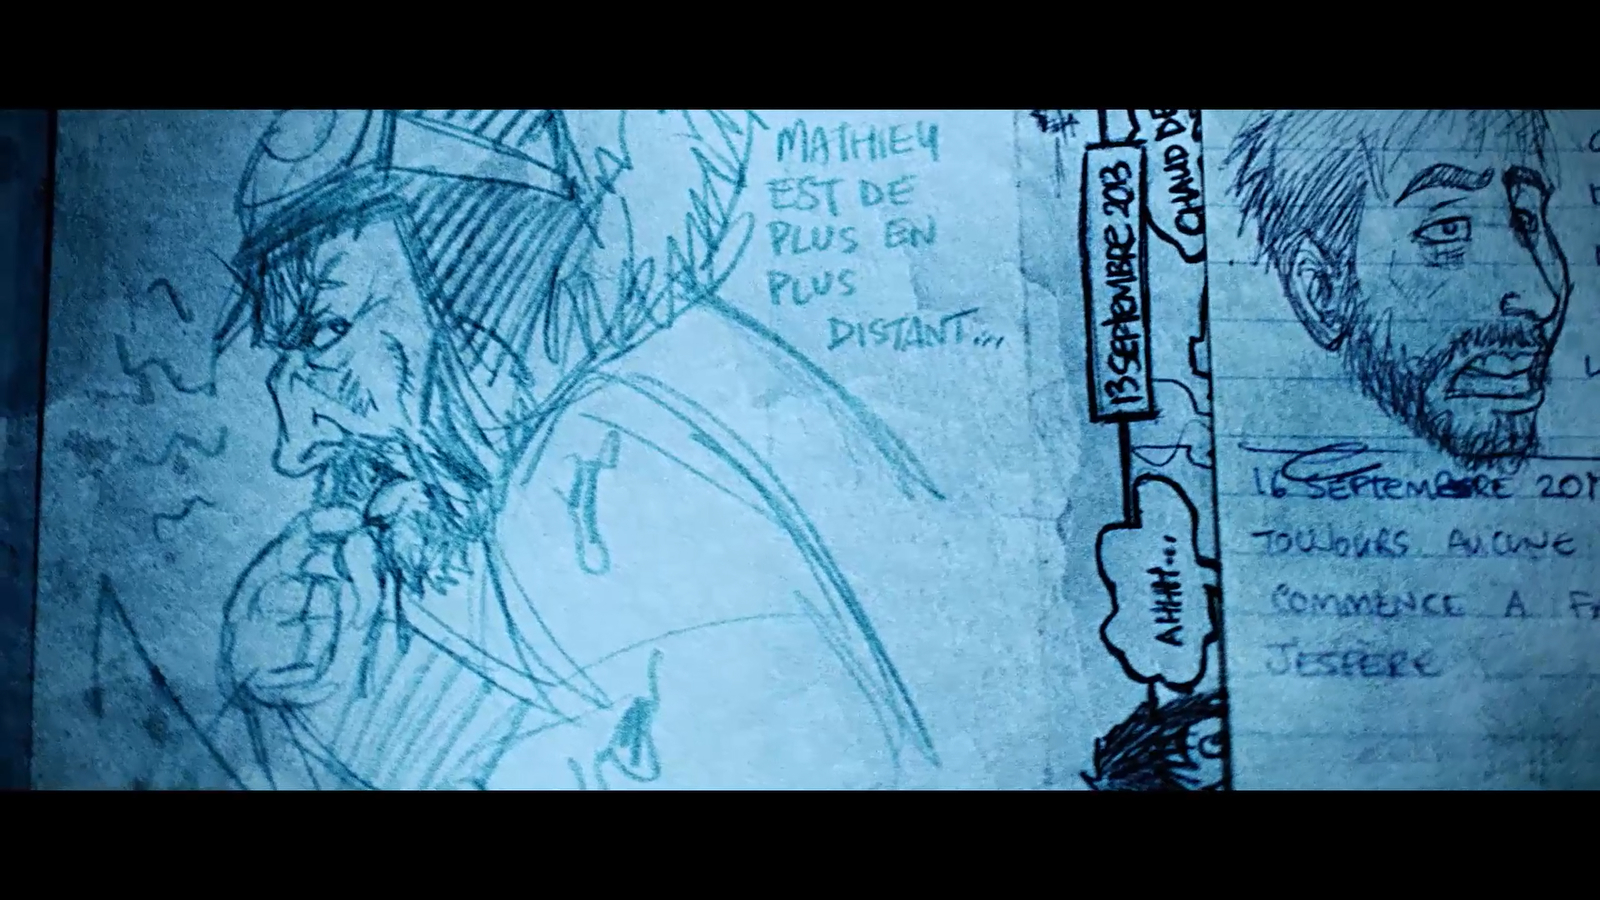 MATHIEU
EST DE
PLUS EN
PLUS
DISTANT...
13 SEPTEMBRE 2013
CHAUD DE
AHHH...
16 SEPTEMBRE 201
TOUJOURS AUCUNE
COMMENCE A FA
J'ESPERE